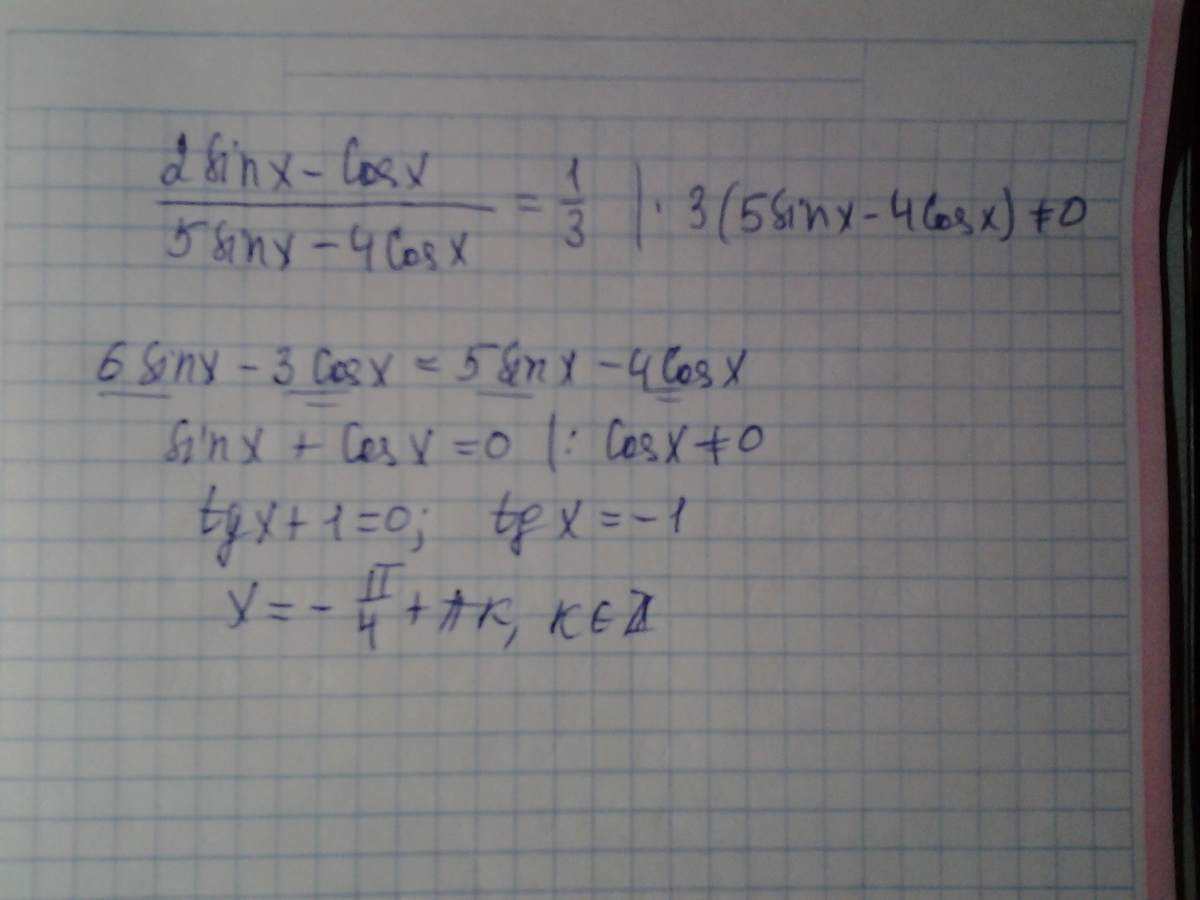 (2 sin x - cos x)/(5 sin x - 4 cos x) = 1/3 | · 3(5 sin x - 4 cos x) ≠ 0
6 sin x - 3 cos x = 5 sin x - 4 cos x
sin x + cos x = 0 |: cos x ≠ 0
tg x + 1 = 0; tg x = -1
x = - π/4 + πк, к ∈ Z